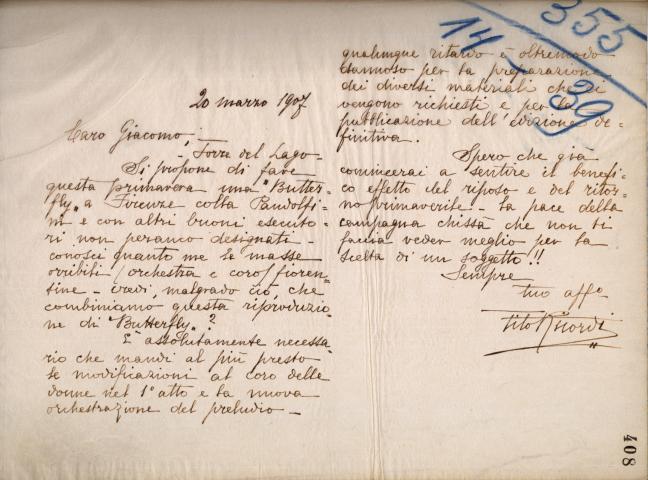 20 marzo 1907
Caro Giacomo,
Torre del Lago -
Si propone di fare
questa primavera una "Butter-
fly" a Firenze colla Pandolfi-
ni e con altri buoni esecuto-
ri non peranco designati -
conosci quanto me le masse
orribili (orchestra e coro) fioren-
tine - credi, malgrado ciò, che
combiniamo questa riproduzio-
ne di "Butterfly"?
È assolutamente necessa-
rio che mandi al più presto
le modificazioni al coro delle
donne nel 1º atto e la nuova
orchestrazione del preludio -
qualunque ritardo è oltremodo
dannoso per la preparazione
dei diversi materiali che ci
vengono richiesti e per la
pubblicazione dell'edizione de-
finitiva.
Spero che già
comincerai a sentire il benefi-
co effetto del riposo e del ritor-
no primaverile - la pace della
campagna chissà che non ti
faccia veder meglio per la
scelta di un soggetto!!
Sempre
tuo affº
Tito Ricordi
355
14
39
408